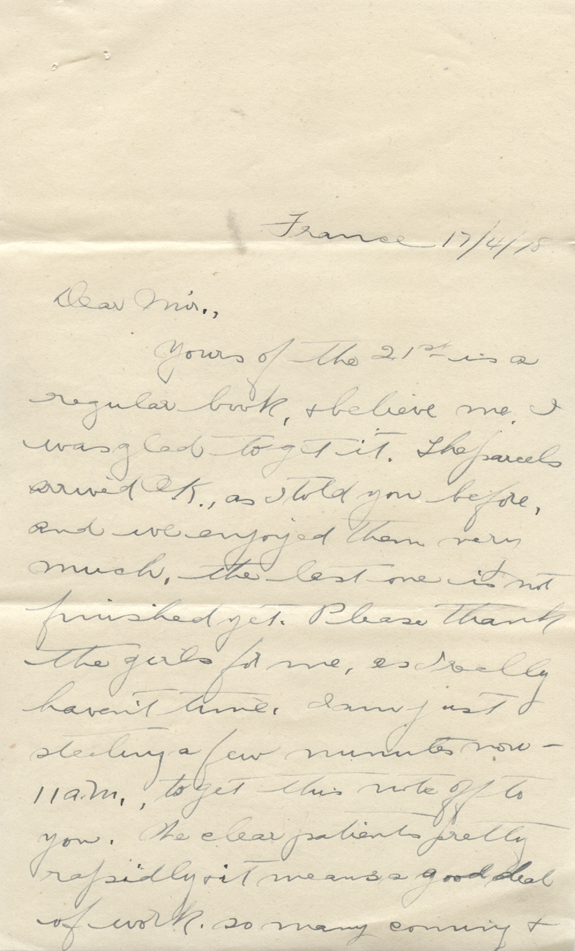 France 17/4/18
Dear Mir.,
Yours of the 21st is a
regular book, & believe me, I
was glad to get it. The parcels
arrived OK., as I told you before,
and we enjoyed them very
much, the last one is not
finished yet. Please thank
the girls for me, as I really
haven't time. I am just
stealing a few minutes now –
11 a.m., to get this note off to
you. We clear patients pretty
rapidly & it means a good deal
of work. so many coming &